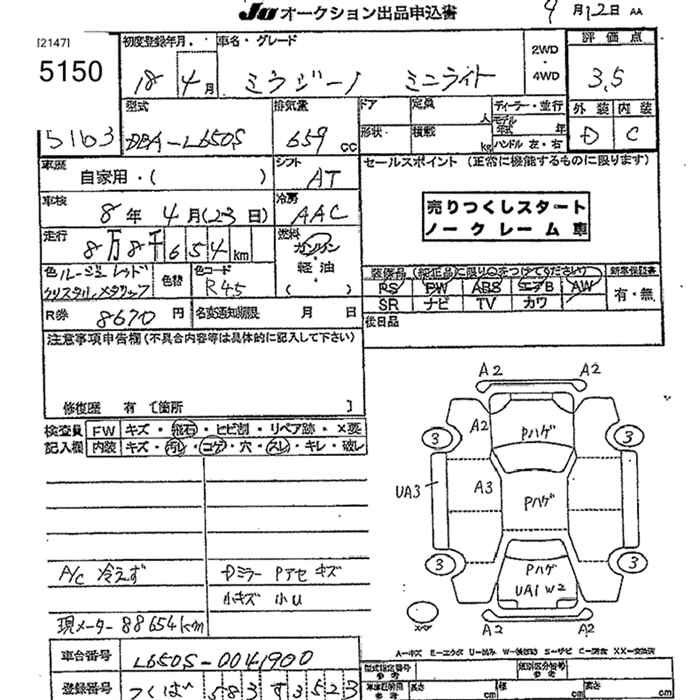 JU オークション出品申込書 9月12日 AA
[2147] 初度登録年月. 車名・グレード 2WD 評価点
5150 18 4月 ミラジーノ ミニライト ・4WD 3.5
型式 排気量 ドア 定員 人 ディーラー・並行 外装 内装
5163 DBA-L650S 659 cc 形状 積載 kg モデル年式 年 ハンドル 左・右 D C
車歴 シフト セールスポイント (正常に機能するものに限ります)
自家用・( ) AT
車検 冷房 売りつくしスタート
8年 4月(23日) AAC ノークレーム車
走行 8万8千654km 燃料 ガソリン
軽油
色 ルージュレッド 色替 色コード ( ) 装備品(純正品に限り○をつけてください) 新車保証書
クリスタルメタリック R45 PS PW ABS エアB AW 有・無
SR ナビ TV カワ
R券 8670円 名変通知期限 月 日 後日品
注意事項申告欄(不具合内容等は具体的に記入して下さい)
修復歴 有 [箇所 ]
検査員 FW キズ・飛石・ヒビ割・リペア跡・×要
記入欄 内装 キズ・汚レ・コゲ・穴・スレ・キレ・破レ
A2 A2
A2 Pハゲ
3 3
UA3 A3 Pハゲ
Pハゲ
3 UA1 W2 3
A2 A2
A/C 冷えず Dミラー Pアセ キズ
小キズ 小U
現メーター 88654km
車台番号 L650S-0041900
登録番号 つくば 583 す 3523
型式指定番号 参考 類別区分番号 参考
長さ cm 幅 cm 高さ cm